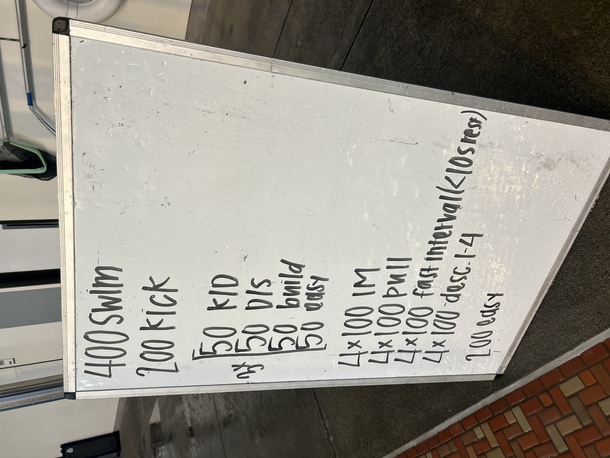 400 SWIM
200 KICK
3x
50 K/D
50 D/S
50 build
50 easy
4x100 IM
4x100 pull
4x100 fast interval (<10s rest)
4x100 desc. 1-4
200 easy